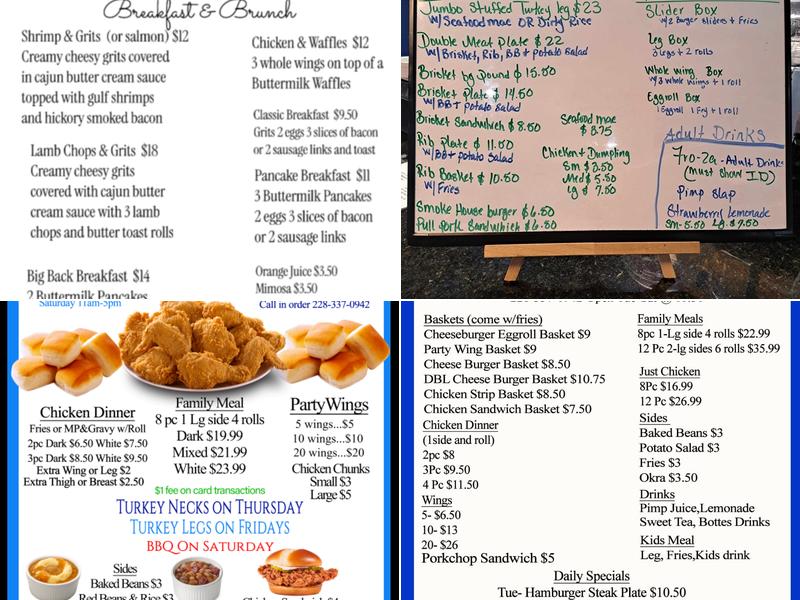 Breakfast & Brunch
Shrimp & Grits (or salmon) $12
Creamy cheesy grits covered
in cajun butter cream sauce
topped with gulf shrimps
and hickory smoked bacon
Lamb Chops & Grits $18
Creamy cheesy grits
covered with cajun butter
cream sauce with 3 lamb
chops and butter toast rolls
Big Back Breakfast $14
2 Buttermilk Pancakes
Chicken & Waffles $12
3 whole wings on top of a
Buttermilk Waffles
Classic Breakfast $9.50
Grits 2 eggs 3 slices of bacon
or 2 sausage links and toast
Pancake Breakfast $11
3 Buttermilk Pancakes
2 eggs 3 slices of bacon
or 2 sausage links
Orange Juice $3.50
Mimosa $3.50
Jumbo Stuffed Turkey leg $23
w/Seafood mac OR Dirty Rice
Double Meat Plate $22
w/Brisket, Rib, BB + potato Salad
Brisket by Pound $15.50
Brisket Plate $14.50
w/BB + potato Salad
Brisket Sandwhich $8.50
Rib Plate $11.00
w/BB + potato Salad
Rib Basket $10.50
w/Fries
Smoke House burger $6.50
Pull Pork Sandwhich $6.50
Seafood mac
$8.75
Chicken + Dumpling
Sm $3.50
Med $5.50
lg $7.50
Slider Box
w/2 Burger Sliders + Fries
Leg Box
3 legs + 2 rolls
Whole wing Box
w/3 whole wings + 1 roll
Eggroll Box
1 Eggroll 1 Fry + 1 roll
Adult Drinks
Fro-ze - Adult Drinks
(Must Show ID)
Pimp Slap
Strawberry Lemonade
Sm-5.50 Lg $9.50
Saturday 11am-5pm
Call in order 228-337-0942
Chicken Dinner
Fries or MP&Gravy w/Roll
2pc Dark $6.50 White $7.50
3pc Dark $8.50 White $9.50
Extra Wing or Leg $2
Extra Thigh or Breast $2.50
Family Meal
8 pc 1 Lg side 4 rolls
Dark $19.99
Mixed $21.99
White $23.99
PartyWings
5 wings...$5
10 wings...$10
20 wings...$20
Chicken Chunks
Small $3
Large $5
$1 fee on card transactions
TURKEY NECKS ON THURSDAY
TURKEY LEGS ON FRIDAYS
BBQ ON SATURDAY
Sides
Baked Beans $3
Red Beans & Rice $3
Baskets (come w/fries)
Cheeseburger Eggroll Basket $9
Party Wing Basket $9
Cheese Burger Basket $8.50
DBL Cheese Burger Basket $10.75
Chicken Strip Basket $8.50
Chicken Sandwich Basket $7.50
Chicken Dinner
(1side and roll)
2pc $8
3Pc $9.50
4 Pc $11.50
Wings
5- $6.50
10- $13
20- $26
Porkchop Sandwich $5
Family Meals
8pc 1-Lg side 4 rolls $22.99
12 Pc 2-lg sides 6 rolls $35.99
Just Chicken
8Pc $16.99
12 Pc $26.99
Sides
Baked Beans $3
Potato Salad $3
Fries $3
Okra $3.50
Drinks
Pimp Juice,Lemonade
Sweet Tea, Bottes Drinks
Kids Meal
Leg, Fries,Kids drink
Daily Specials
Tue- Hamburger Steak Plate $10.50